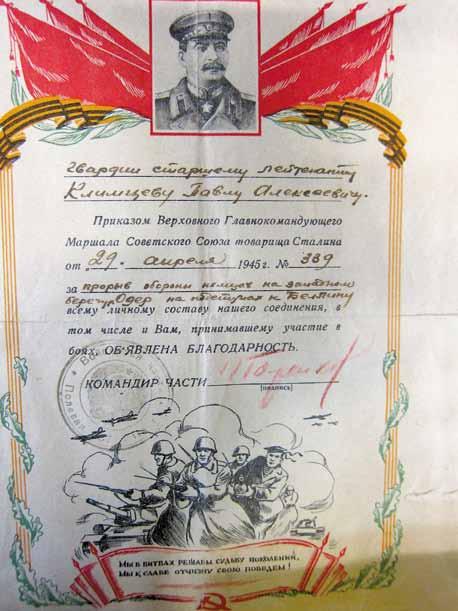 гвардии старшему лейтенанту
Климцеву Павлу Алексеевичу.
Приказом Верховного Главнокомандующего
Маршала Советского Союза товарища Сталина
от „29“ апреля 1945г. № 339
за прорыв обороны немцев на западном
берегу Одер на подступах к Берлину
всему личному составу нашего соединения, в
том числе и Вам, принимавшему участие в
боях, ОБ'ЯВЛЕНА БЛАГОДАРНОСТЬ.
КОМАНДИР ЧАСТИ
(подпись)
МЫ В БИТВАХ РЕШАЕМ СУДЬБУ ПОКОЛЕНИЙ,
МЫ К СЛАВЕ ОТЧИЗНУ СВОЮ ПОВЕДЕМ!